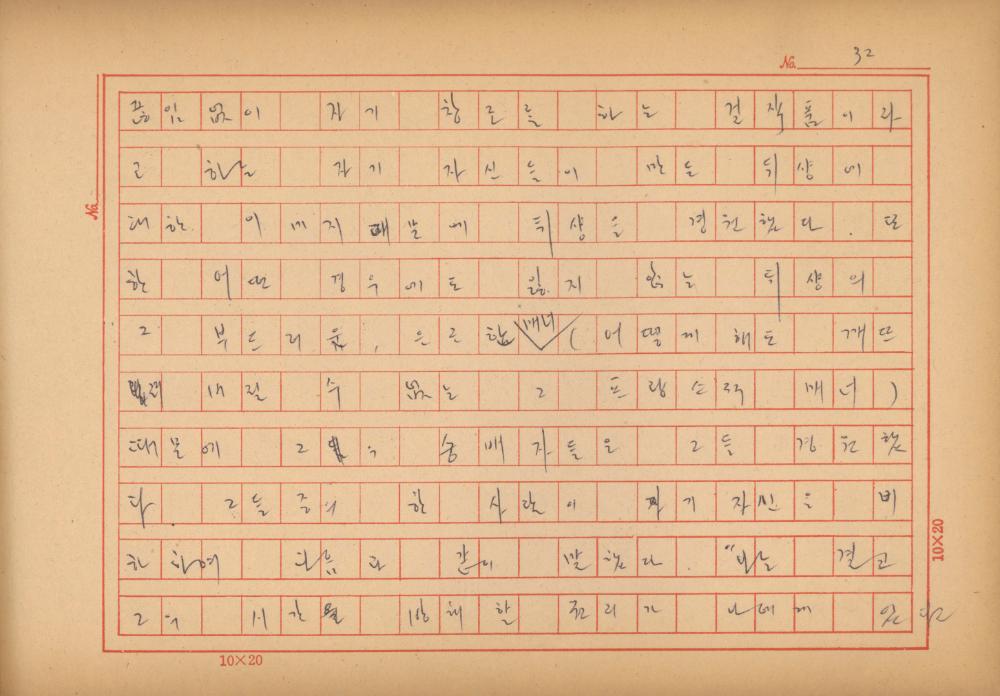 No. 32
끊임 없이 자기 창조를 하는 걸작품이라
고 하는 자기 자신들이 만든 뒤샹에
대한 이메지 때문에 뒤샹을 경원했다. 또
한 어떤 경우에도 잃지 않는 뒤샹의
그 부드러운, 은은한 매너 (어떻게 해도 깨뜨
릴 수 없는 그 프랑스적 매너)
때문에 그의 숭배자들은 그를 경원했
다 그들 중의 한 사람이 자기 자신을 비
하 하여 다음과 같이 말했다. "나는 결코
그의 시간을 방해할 권리가 나에게 있다고
No.
10×20
10×20